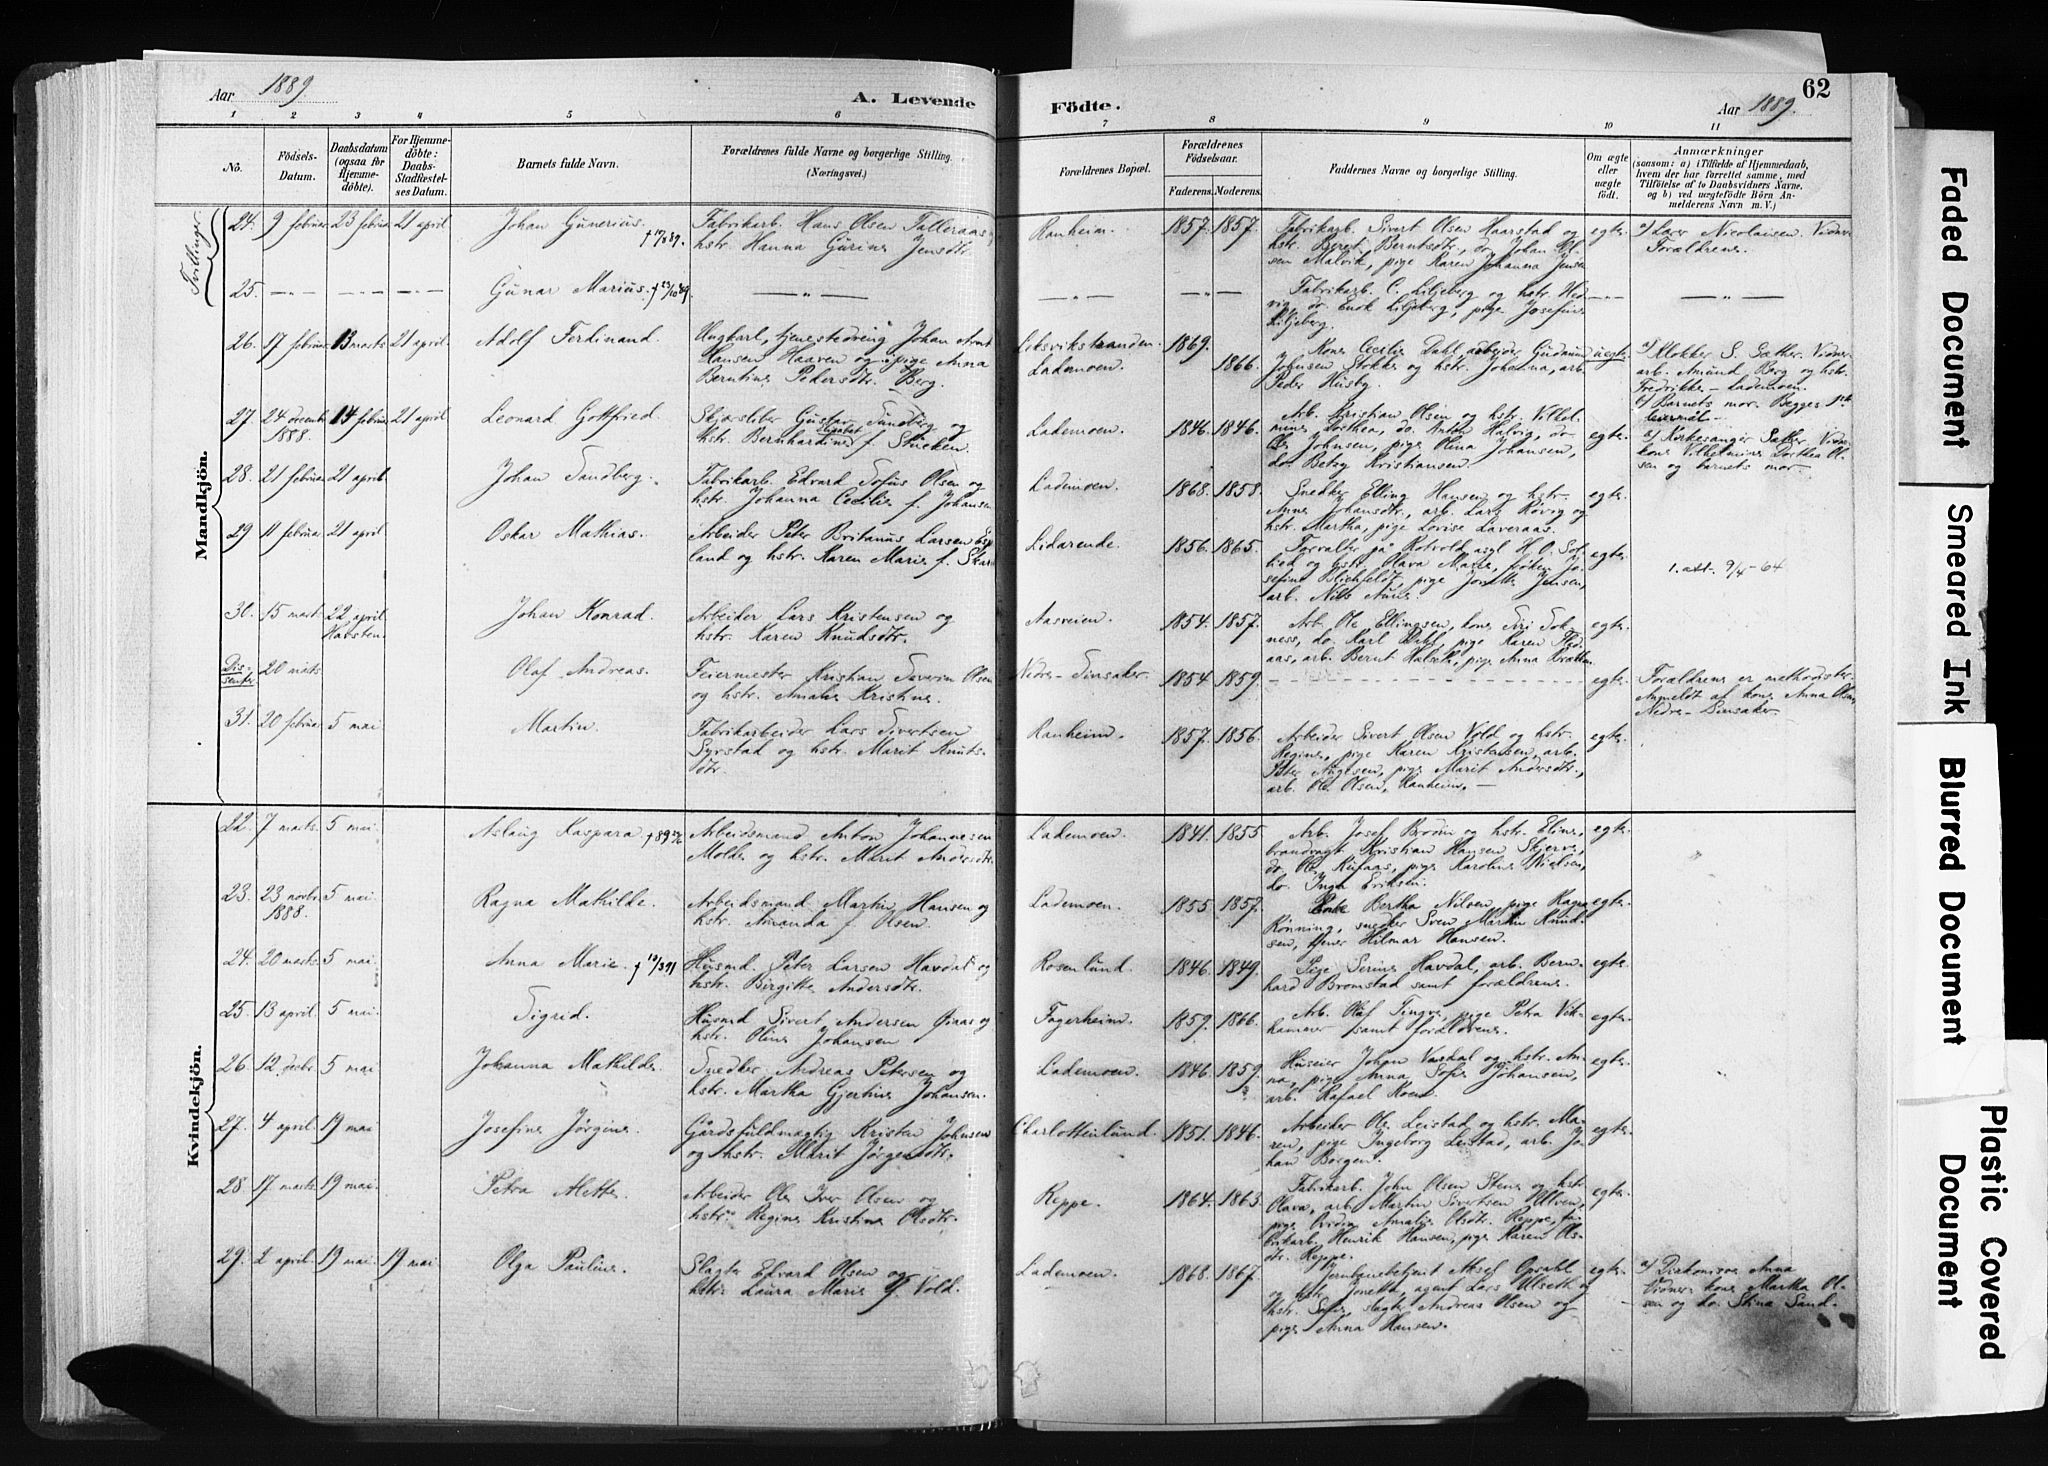 Aar 1889.
A. Levende
Födte.
Aar 1889.
62
1 2 3 4 5 6 7 8 9 10 11
No.
Födsels-
Datum.
Daabsdatum
(ogsaa for
Hjemme-
döbte).
For Hjemme-
döbte:
Daabs-
Stadfæstel-
ses Datum.
Barnets fulde Navn.
Forældrenes fulde Navne og borgerlige Stilling.
(Næringsvei.)
Forældrenes Bopæl.
Forældrenes
Födselsaar.
Faderens. Moderens.
Faddernes Navne og borgerlige Stilling.
Om ægte
eller
uægte
födt.
Anmærkninger
(saasom: a) i Tilfælde af Hjemmedaab,
hvem der har forrettet samme, med
Tilföielse af to Daabsvidners Navne,
og b) ved uægtefödte Börn An-
melderens Navn m. V.)
Mandkjön.
Tvillinger
24. 9 februar 23 februar 21 april Johan Gunerius. Fabrikarb. Hans Olsen
hstr. Hanna Gurine Jensdtr.
Ranheim. 1857. 1857. Fabrikarb. Sivert Olsen Haarstad og
hstr. Berit Berntsdtr, do Johan Ol-
sen Malvik, pige Karen Johanna Jensen
egte. a) Lærer Nicolaisen. Vidner
Forældrene.
25. Gunar Marius.
Fabrikarb. C. Liljeberg og hstr. Hed-
vig, do. Enok Liljeberg, pige Josefine
Liljeberg.
26. 17 februar 13 marts 21 april. Adolf Ferdinand. Ungkarl, tjenestedreng Johan Arnt
Hansen Haaven og pige Anna
Berntine Pedersdtr. Berg.
Leksvikstranden.
Lademoen.
1869.
1866.
Kone Cecilie Dahl, arbeider Gudmund
Johnsen Stokke og hstr. Johanna, arb.
Peder Husby.
uegte. a) Klokker S. Sæther. Vidner
arb. Amund Berg og hstr.
Fredrikke - Lademoen.
b) Barnets mor. Begges 1ste
leiermaal.
27. 24 decembr
1888. 14 februar 21 april Leonard Gottfried. Gustav Sundberg og
hstr. Bernhardine Elisabet f. Stücken.
Lademoen. 1846. 1846. Arb. Kristian Olsen og hstr. Vilhel-
mine Dorthea, do. Anton Halvig, do
Ole Johnsen, pige Olina Johansen,
do. Betzy Kristiansen.
egte. a) Kirkesanger Sæther. Vidner
kone Vilhelmine Dorthea Ol-
sen og barnets mor.
28. 21 februar 21 april. Johan Sundberg. Fabrikarb. Edvard Sofus Olsen og
hstr. Johanna Cecilie f. Johansen
Lademoen. 1868. 1858. Snedker Elling Hansen og hstr.
Anne Johansdtr., arb. Lars Røvig og
hstr. Martha, pige Lovise Laveraas.
egte.
29 11 februar 21 april Oskar Mathias. Arbeider Peter Britanus Larsen Esp-
land og hstr. Karen Marie f. Skar
Lidarende. 1856. 1865. Forvalter på Rotvold asyl H. O. Sol-
lied og hstr. Olava Marie, frøken Jo-
sefine Blichfeldt, pige Jonetta Jensen,
arb. Nils Aune.
egte. 1. att. 9/4-64
30. 15 marts 22 april Johan Konrad. Arbeider Lars Kristensen og
hstr. Karen Knudsdtr.
Aasveien. 1854. 1857. Arb. Ole Ellingsen, kone Siri Sol-
ness, do. Karl Dahl, pige Karen
aas, arb. Bernt Halseth, pige Anna
egte.
Dis-
senter 20 marts Olaf Andreas. Feiermester Kristian Severin Olsen
og hstr. Amalie Kristine.
Nedre-Sinsaker. 1854 1859.
egte. Forældrene er methodister.
Anmeldt af kone Anna Olsen
Nedre-Sinsaker.
31. 20 februar 5 mai Martin. Fabrikarbeider Lars Sivertsen
Syrstad og hstr. Marit Knuts-
dtr.
Ranheim. 1857. 1856. Arbeider Sivert Olsen Vold og hstr.
Regine, pige Karen Kristensen, arb.
Peter pige Marit Andersdtr.,
arb. Ole Olsen, Ranheim.
egte.
Kvindekjön.
22. 7 marts. 5 mai. Aslaug Kaspara Arbeidsmand Anton Johannesen
Molde og hstr. Marit Andersdtr.
Lademoen. 1841. 1855 Arb. Josef Broem og hstr. Eline,
brandvagt Kristian Hansen Skjerve,
do. Ole Rufaas, pige Karoline Nielsen,
do. Inga Eriksen.
egte.
23. 23 novbr.
1888. 5 mai. Ragna Mathilde. Arbeidsmand Martin Hansen og
hstr. Amanda f. Olsen.
Lademoen. 1855 1857. Enke Bertha Nilsen, pige Ragna
Rönning, snedker Sven Martin Knud-
sen, tjener Hilmar Hansen.
egte.
24. 20 marts 5 mai. Anna Marie. Husmd. Peter Larsen Havdal og
hstr. Birgitte Andersdtr.
Rosenlund. 1846. 1849. Pige Serine Havdal, arb. Bern-
hard Bromstad samt forældrene.
egte.
25. 13 april. 5 mai. Sigrid. Husmd Sivert Andersen Øiaas og
hstr. Oline Johansen
Fagerheim. 1859. 1866. Arb. Olaf Tingve, pige Petra Vik-
hammer samt forældrene.
egte.
26. 12. decbr 5 mai Johanna Mathilde Snedker Andreas Petersen og
hstr. Martha Gjertine Johansen.
Lademoen. 1846 1859. Huseier Johan Værdal og hstr. An-
na, pige Anna Sofie Johansen,
arb. Rafael Roen
egte.
27. 4 april. 19 mai Josefine Jørgine. Gårdsfuldmægtig Kristen Johnsen
og hstr. Marit Jørgensdtr.
Charlottenlund. 1851. 1846. Arbeider Ole Leistad og hstr. Ma-
ren, pige Ingeborg Leistad, arb. Jo-
han Borgen.
egte.
28. 17. marts 19 mai. Petra Alette. Arbeider Ole Iver Olsen og
hstr. Regine Kristine Olsdtr.
Reppe. 1864. 1863. Fabrikarb. John Olsen Stene og hstr.
Olava, arb. Martin Sivertsen Ulven,
pige Ovidia Amalie Olsdtr. Reppe, fa-
brikarb. Henrik Hansen, pige Karen Ols-
dtr. Reppe.
egte.
29. 2 april. 19 mai. 19 mai Olga Pauline. Slagter Edvard Olsen og
hstr. Laura Marie f. Vold.
Lademoen. 1868. 1867. Jernbanebetjent Aksel Opsahl
og hstr. Jonetta, agent Lars Ulseth og
hstr. Sofie, slagter Andreas Olsen og
pige Anna Hansen.
egte. a) Diakonisse Anna
Vidner: kone Martha Ol-
sen og do. Stina Sand-
Faded Document
Smeared Ink
Blurred Document
Plastic Covered
Document